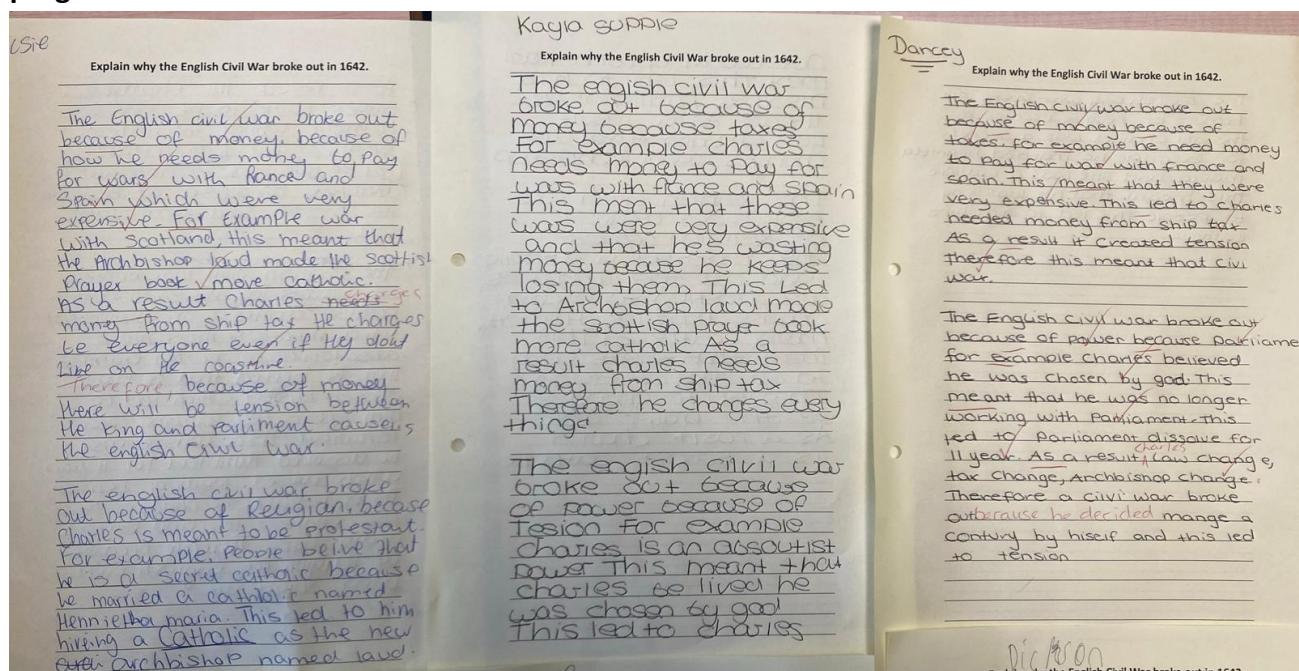 Elsie
Explain why the English Civil War broke out in 1642.
The English civil war broke out
because of money, because of
how he needs money to pay
for wars with france and
Spain which were very
expensive. For Example war
with Scotland, this meant that
the Archbishop laud made the Scottish
Prayer book more catholic.
As a result Charles needs charges
money from ship tax He charges
to everyone even if they dont
live on the coastline.
Therefore, because of money
there will be tension between
the king and parliment causeing
the english civil war.
The english civil war broke
out because of Religian, becase
Charles is meant to be protestant.
For example, People belive that
he is a secret catholic because
he married a cathlolic named
Henniethia maria. This led to him
hireing a Catholic as the new
archbishop named laud.
Kayla suppie
Explain why the English Civil War broke out in 1642.
The engish civil war
broke out because of
money because taxes
For example charles
needs money to pay for
wars with france and spain
This ment that these
wars were very expensive
and that he's wasting
money because he keeps
losing them. This Led
to Archbishop laud made
the scottish prayer book
more catholic As a
result charles needs
money from ship tax
Therefore he changes every
things
The engish cilvii war
broke out because
of power because of
Tesion For example
charles is an absoutist
power This meant that
charles be lived he
was chosen by god
This led to charles
Darcey
Explain why the English Civil War broke out in 1642.
The English civil war broke out
because of money because of
takes. for example he need money
to pay for war with france and
spain. This meant that they were
very expensive. This led to charles
needed money from ship tax
As a result it created tension
therefore this meant that civi
war.
The English civil war broke out
because of power because parliame
for example Charles believed
he was chosen by god. This
meant that he was no longer
working with Parliament. This
led to parliament dissolve for
11 year. As a result, Charles law change,
tax change, Archbishop change.
Therefore a cilvi war broke
out because he decided mange a
contury by hiself and this led
to tension